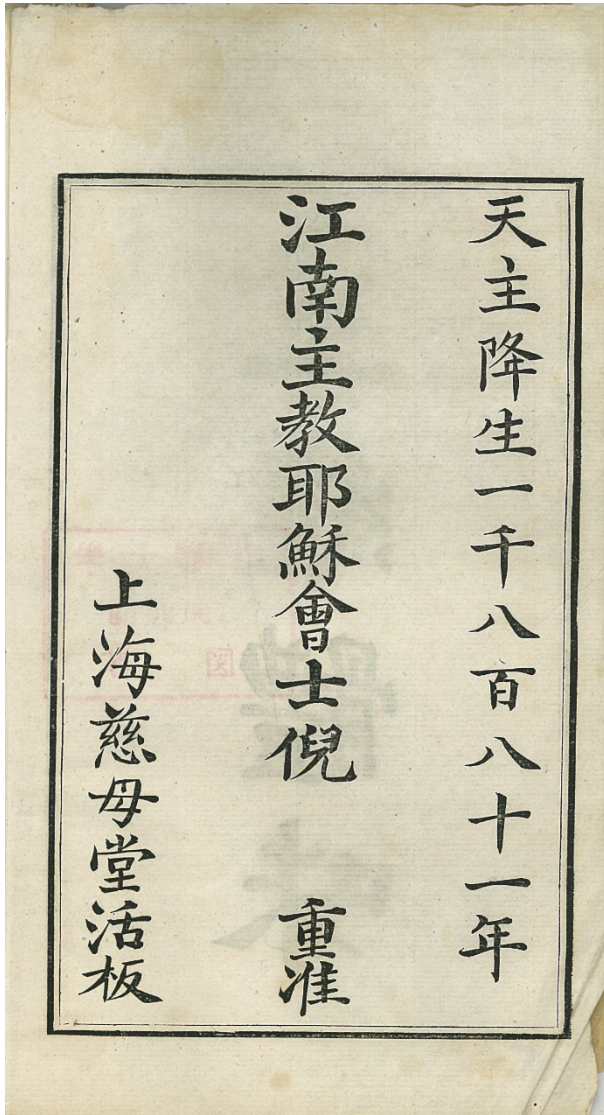 天主降生一千八百八十一年
江南主教耶穌會士倪 重准
上海慈母堂活板